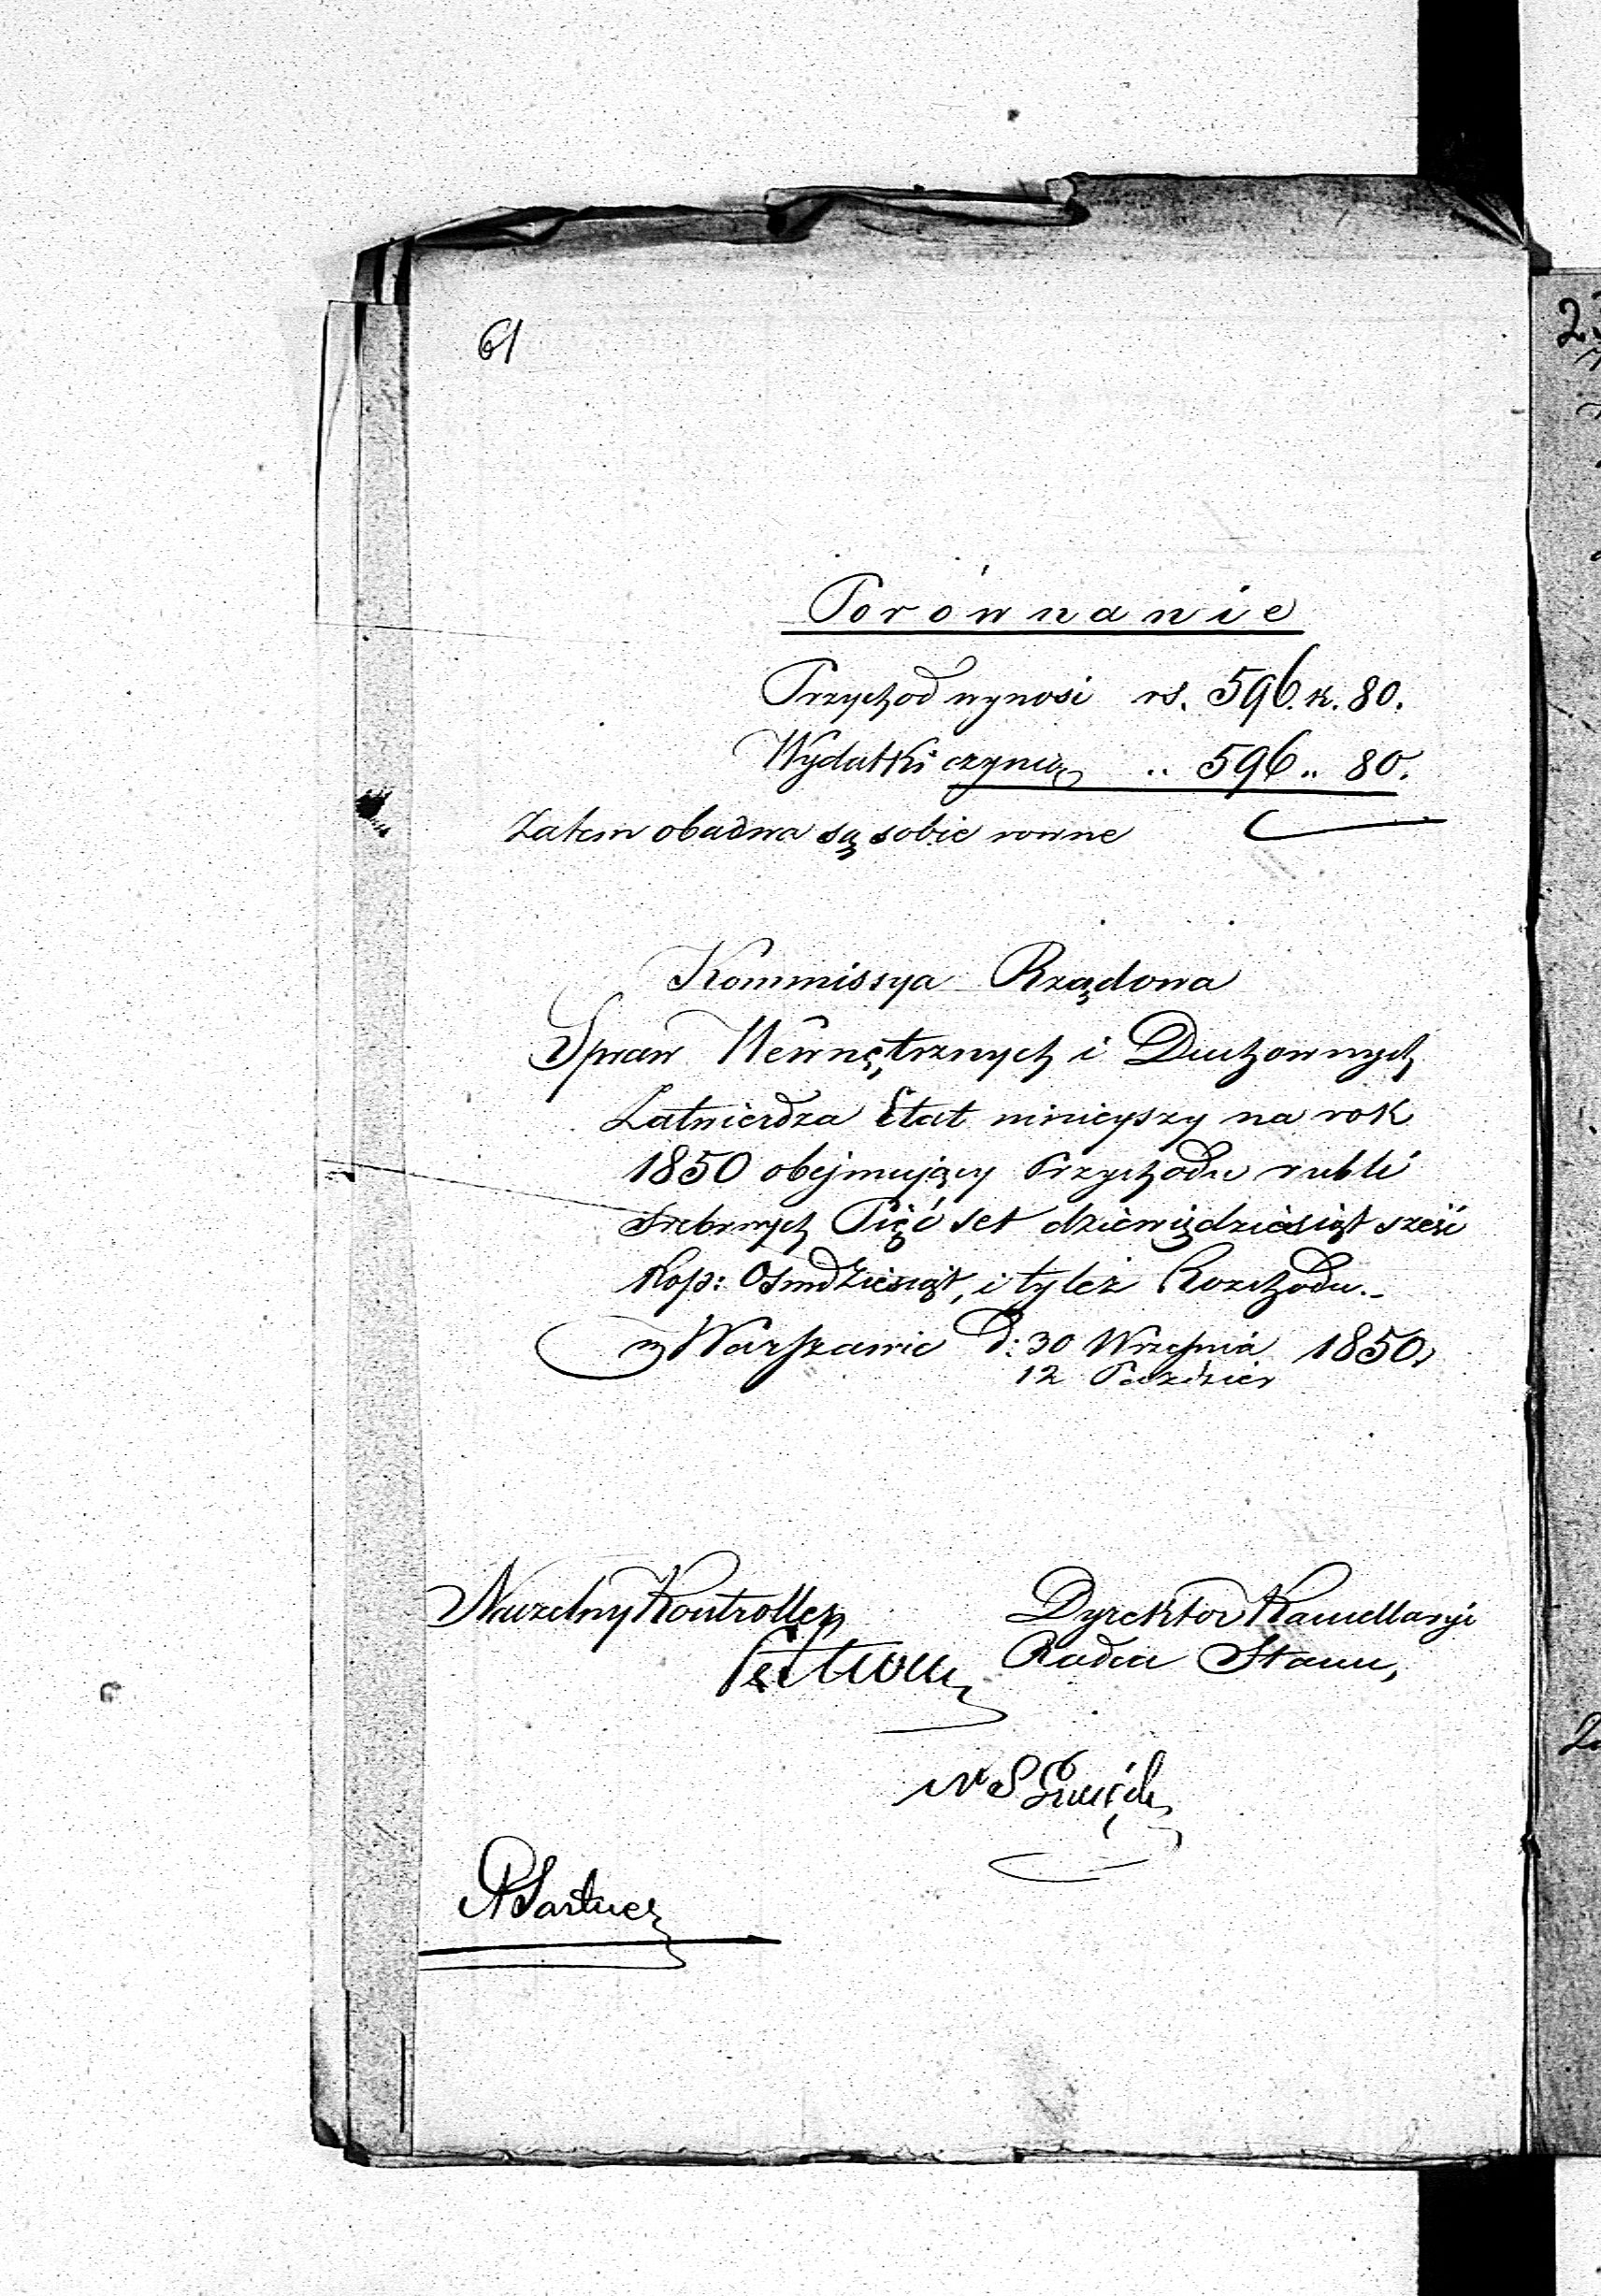 61
Porównanie
Przychod wynosi rs. 596. k. 80.
Wydatki czynią „ 596 „ 80.
Zatem obadwa są sobie rowne
Kommissya Rządowa
Spraw Wewnętrznych i Duchownych
Zatwierdza Etat ninieyszy na rok
1850 obejmujący Przychodu rubli
srebrnych Pięć set dziewięćdziesiąt sześć
Kop: Osmdziesiąt, i tyleż Rozchodu.-
w Warszawie d: 30 Września 1850
12 Paździer
Naczelny Kontroller
Dyrektor Kancellaryi
Radca Stanu,